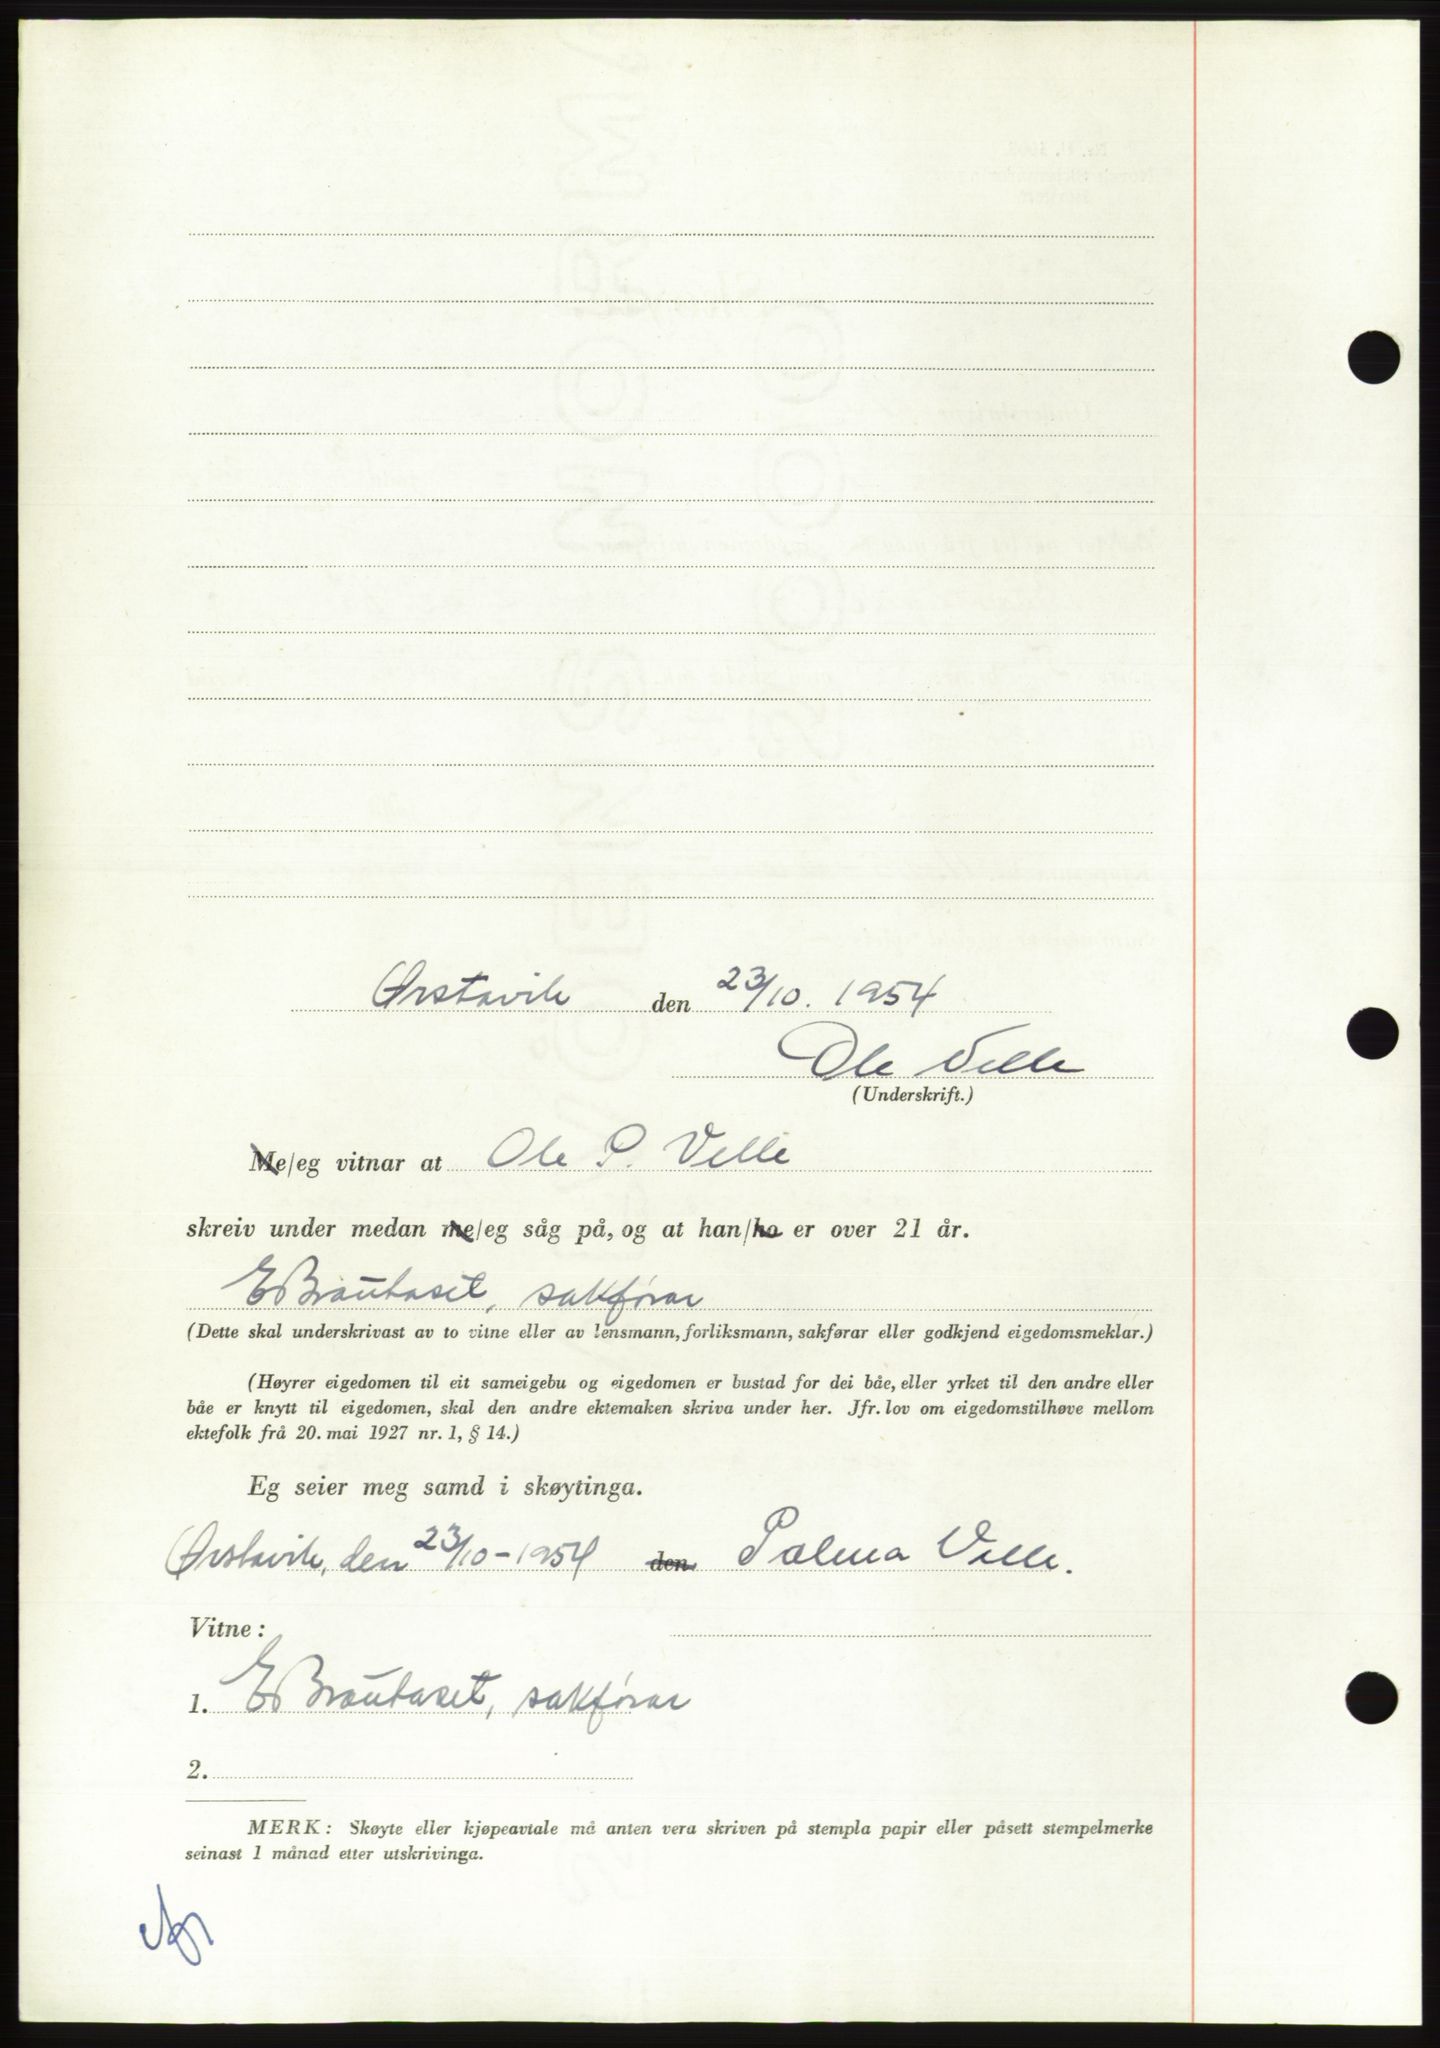 Ørstavik den 23/10. 1954
Ole Velle
(Underskrift.)
Me/eg vitnar at Ole P. Velle
skreiv under medan me/eg såg på, og at han/ho er over 21 år.
E Brautaset, sakførar
(Dette skal underskrivast av to vitne eller av lensmann, forliksmann, sakførar eller godkjend eigedomsmeklar.)
(Høyrer eigedomen til eit sameigebu og eigedomen er bustad for dei båe, eller yrket til den andre eller
båe er knytt til eigedomen, skal den andre ektemaken skriva under her. Jfr. lov om eigedomstilhøve mellom
ektefolk frå 20. mai 1927 nr. 1, § 14.)
Eg seier meg samd i skøytinga.
Ørstavik, den 23/10-1954 den Palma Velle.
Vitne:
1. E Brautaset, sakførar
2.
MERK: Skøyte eller kjøpeavtale må anten vera skriven på stempla papir eller påsett stempelmerke
seinast 1 månad etter utskrivinga.